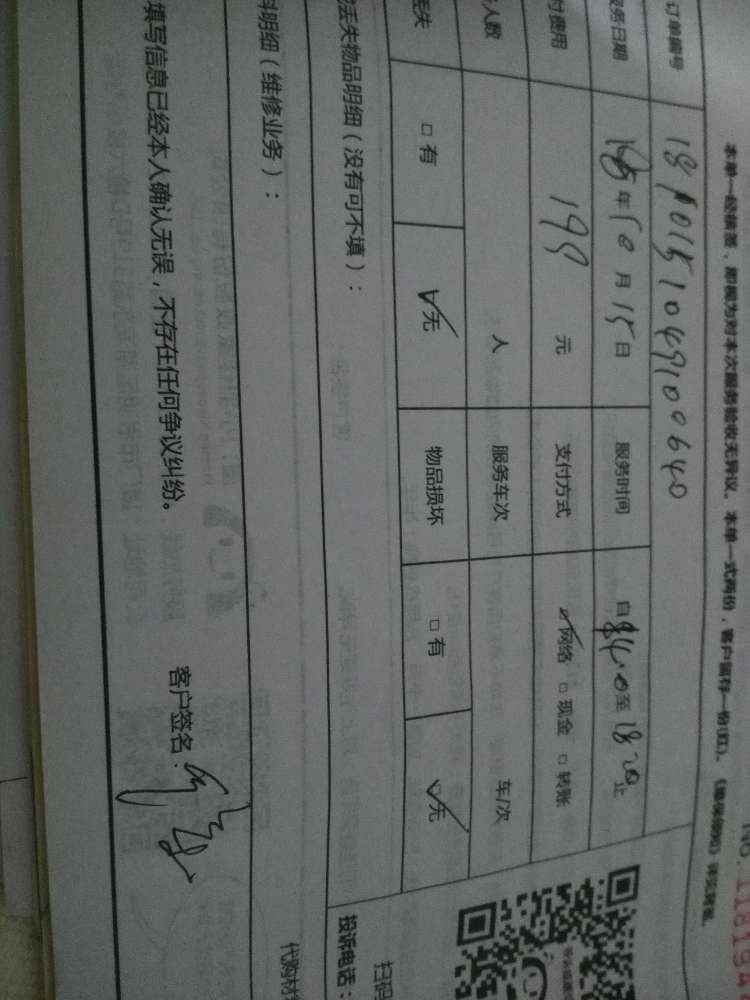 NO.118194
本单一经核签，即视为对本次服务验收无异议。本单一式两份，客户留存一份(红)。
订单编号
服务日期 年10月15日 服务时间 自 至18:20止
付费用 199元 支付方式 ☑网络 □现金 □转账
人数 人 服务车次 车/次
丢失 □有 ☑无 物品损坏 □有 ☑无
丢失物品明细（没有可不填）：
料明细（维修业务）：
填写信息已经本人确认无误，不存在任何争议纠纷。
客户签名：
扫码
投诉电话：
代购材